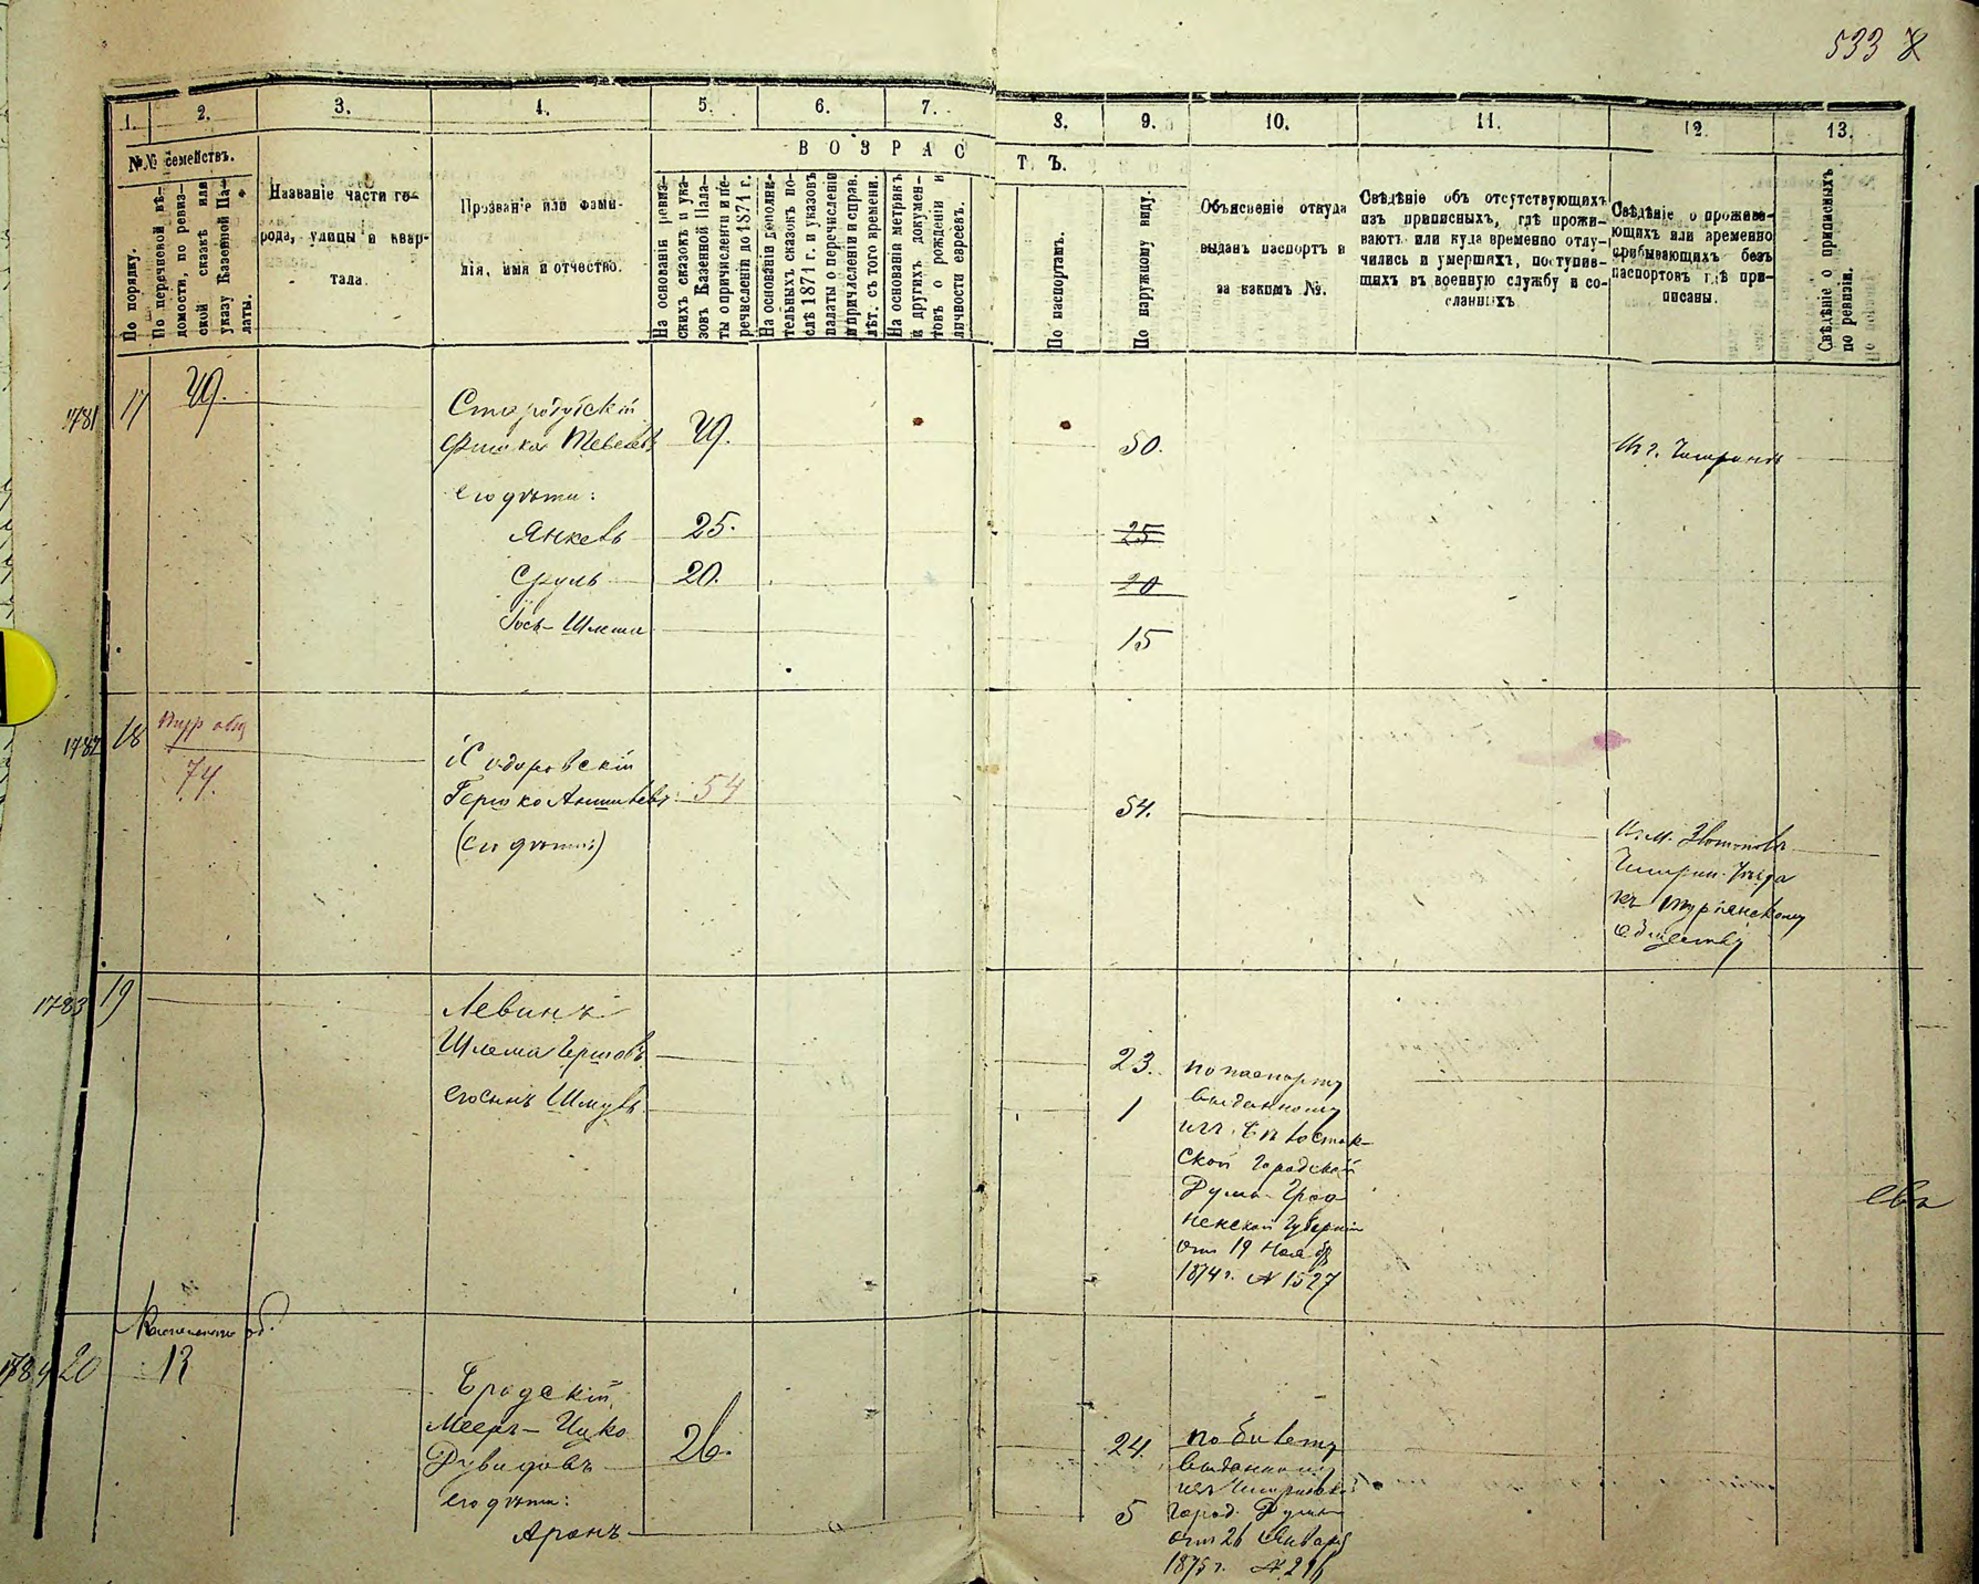 533
1.
2.
3.
4.
5.
6.
7.
8.
9.
10.
11.
12.
13.
№№ семействъ.
В О З Р А С
Т Ъ.
По порядку.
По перечневой вѣ-
домости, по ревиз-
ской сказкѣ или
указу Казенной Па-
латы.
Названіе части го-
рода, улицы и квар-
тала.
Прозваніе или фами-
лія, имя и отчество.
На основаніи ревиз-
скихъ сказокъ и ука-
зовъ Казенной Пала-
ты о причисленіи и пе-
речисленіи до 1871 г.
На основаніи дополни-
тельныхъ сказокъ по-
слѣ 1871 г. и указовъ
палаты о перечисленіи
и причисленіи и справ.
лѣт. съ того времени.
На основаніи метрикъ
и другихъ докумен-
товъ о рожденіи и
личности евреевъ.
По паспортамъ.
По наружному виду.
Объясненіе откуда
выданъ паспортъ и
за какимъ №.
Свѣдѣніе объ отсутствующихъ
изъ приписныхъ, гдѣ прожи-
ваютъ или куда временно отлу-
чились и умершихъ, поступив-
шихъ въ военную службу и со-
сланныхъ.
Свѣдѣніе о прожива-
ющихъ или временно
прибывающихъ безъ
паспортовъ гдѣ при-
писаны.
Свѣдѣніе о приписныхъ
по ревизіи.
1781
17
49.
Стародубскій
Фишка Тевелевъ 49. 50.
его дѣти:
Янкевъ 25. 25
Сруль 20. 20
Іось-Шлема 15
1782
18
74.
Сидоровскій
Гершко Аншелевъ 54 54.
(его дѣти:)
Чигрин. Уѣзда
къ Турянскому
обществу
1783
19
Левинъ
Шлема Гершовъ 23.
его сынъ Шмуль 1
по паспорту
выданному
изъ Бѣлосток-
ской городской
Думы Грод
ненской Губерніи
отъ 19 Нояб
1874 г. № 1527
ева
1784
20
Бродскій
Мееръ-Ицко 26. 24.
Дувидовъ
его дѣти:
Аронъ 5
по билету
выданному
изъ Чигринск
город. Думы
отъ 26 Января
1875 г.